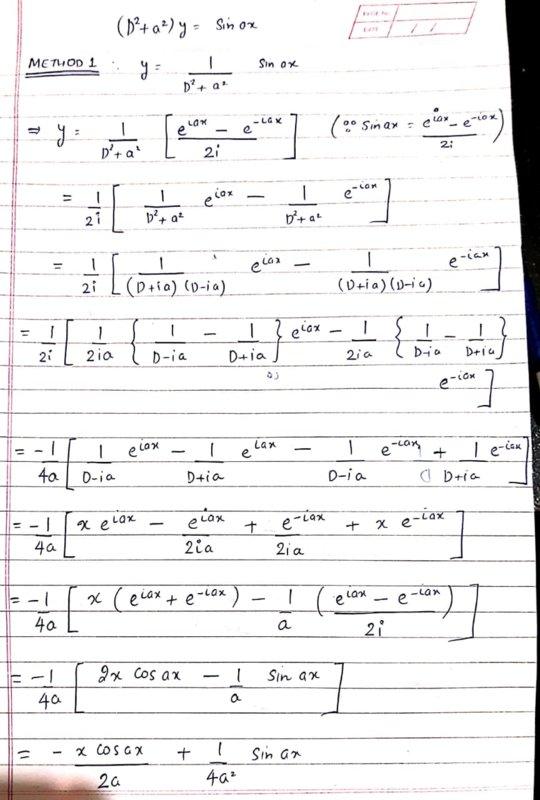 (D²+a²) y = Sin ax
DATE / /
METHOD 1 : y = 1/(D²+a²) Sin ax
⇒ y = 1/(D²+a²) [ (e^{iax} - e^{-iax})/2i ] (∵ Sin ax = (e^{iax} - e^{-iax})/2i)
= 1/2i [ 1/(D²+a²) e^{iax} - 1/(D²+a²) e^{-iax} ]
= 1/2i [ 1/((D+ia)(D-ia)) e^{iax} - 1/((D+ia)(D-ia)) e^{-iax} ]
= 1/2i [ 1/2ia { 1/(D-ia) - 1/(D+ia) } e^{iax} - 1/2ia { 1/(D-ia) - 1/(D+ia) }
e^{-iax} ]
= -1/4a [ 1/(D-ia) e^{iax} - 1/(D+ia) e^{iax} - 1/(D-ia) e^{-iax} + 1/(D+ia) e^{-iax} ]
= -1/4a [ x e^{iax} - e^{iax}/2ia + e^{-iax}/2ia + x e^{-iax} ]
= -1/4a [ x ( e^{iax} + e^{-iax} ) - 1/a ( (e^{iax} - e^{-iax})/2i ) ]
= -1/4a [ 2x cos ax - 1/a Sin ax ]
= - x cos ax/2a + 1/4a² Sin ax